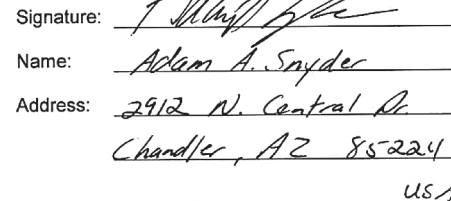 Signature:
Name: Adam A. Snyder
Address: 2912 N. Central Dr.
Chandler, AZ 85224
USA